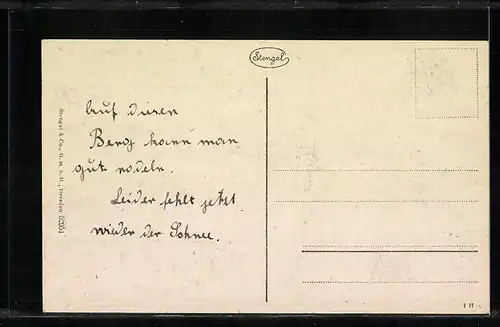 Stengel
Auf diesen
Berg kann man
gut rodeln.
Leider fehlt jetzt
wieder der Schnee.
Stengel & Co., G. m. b. H., Dresden